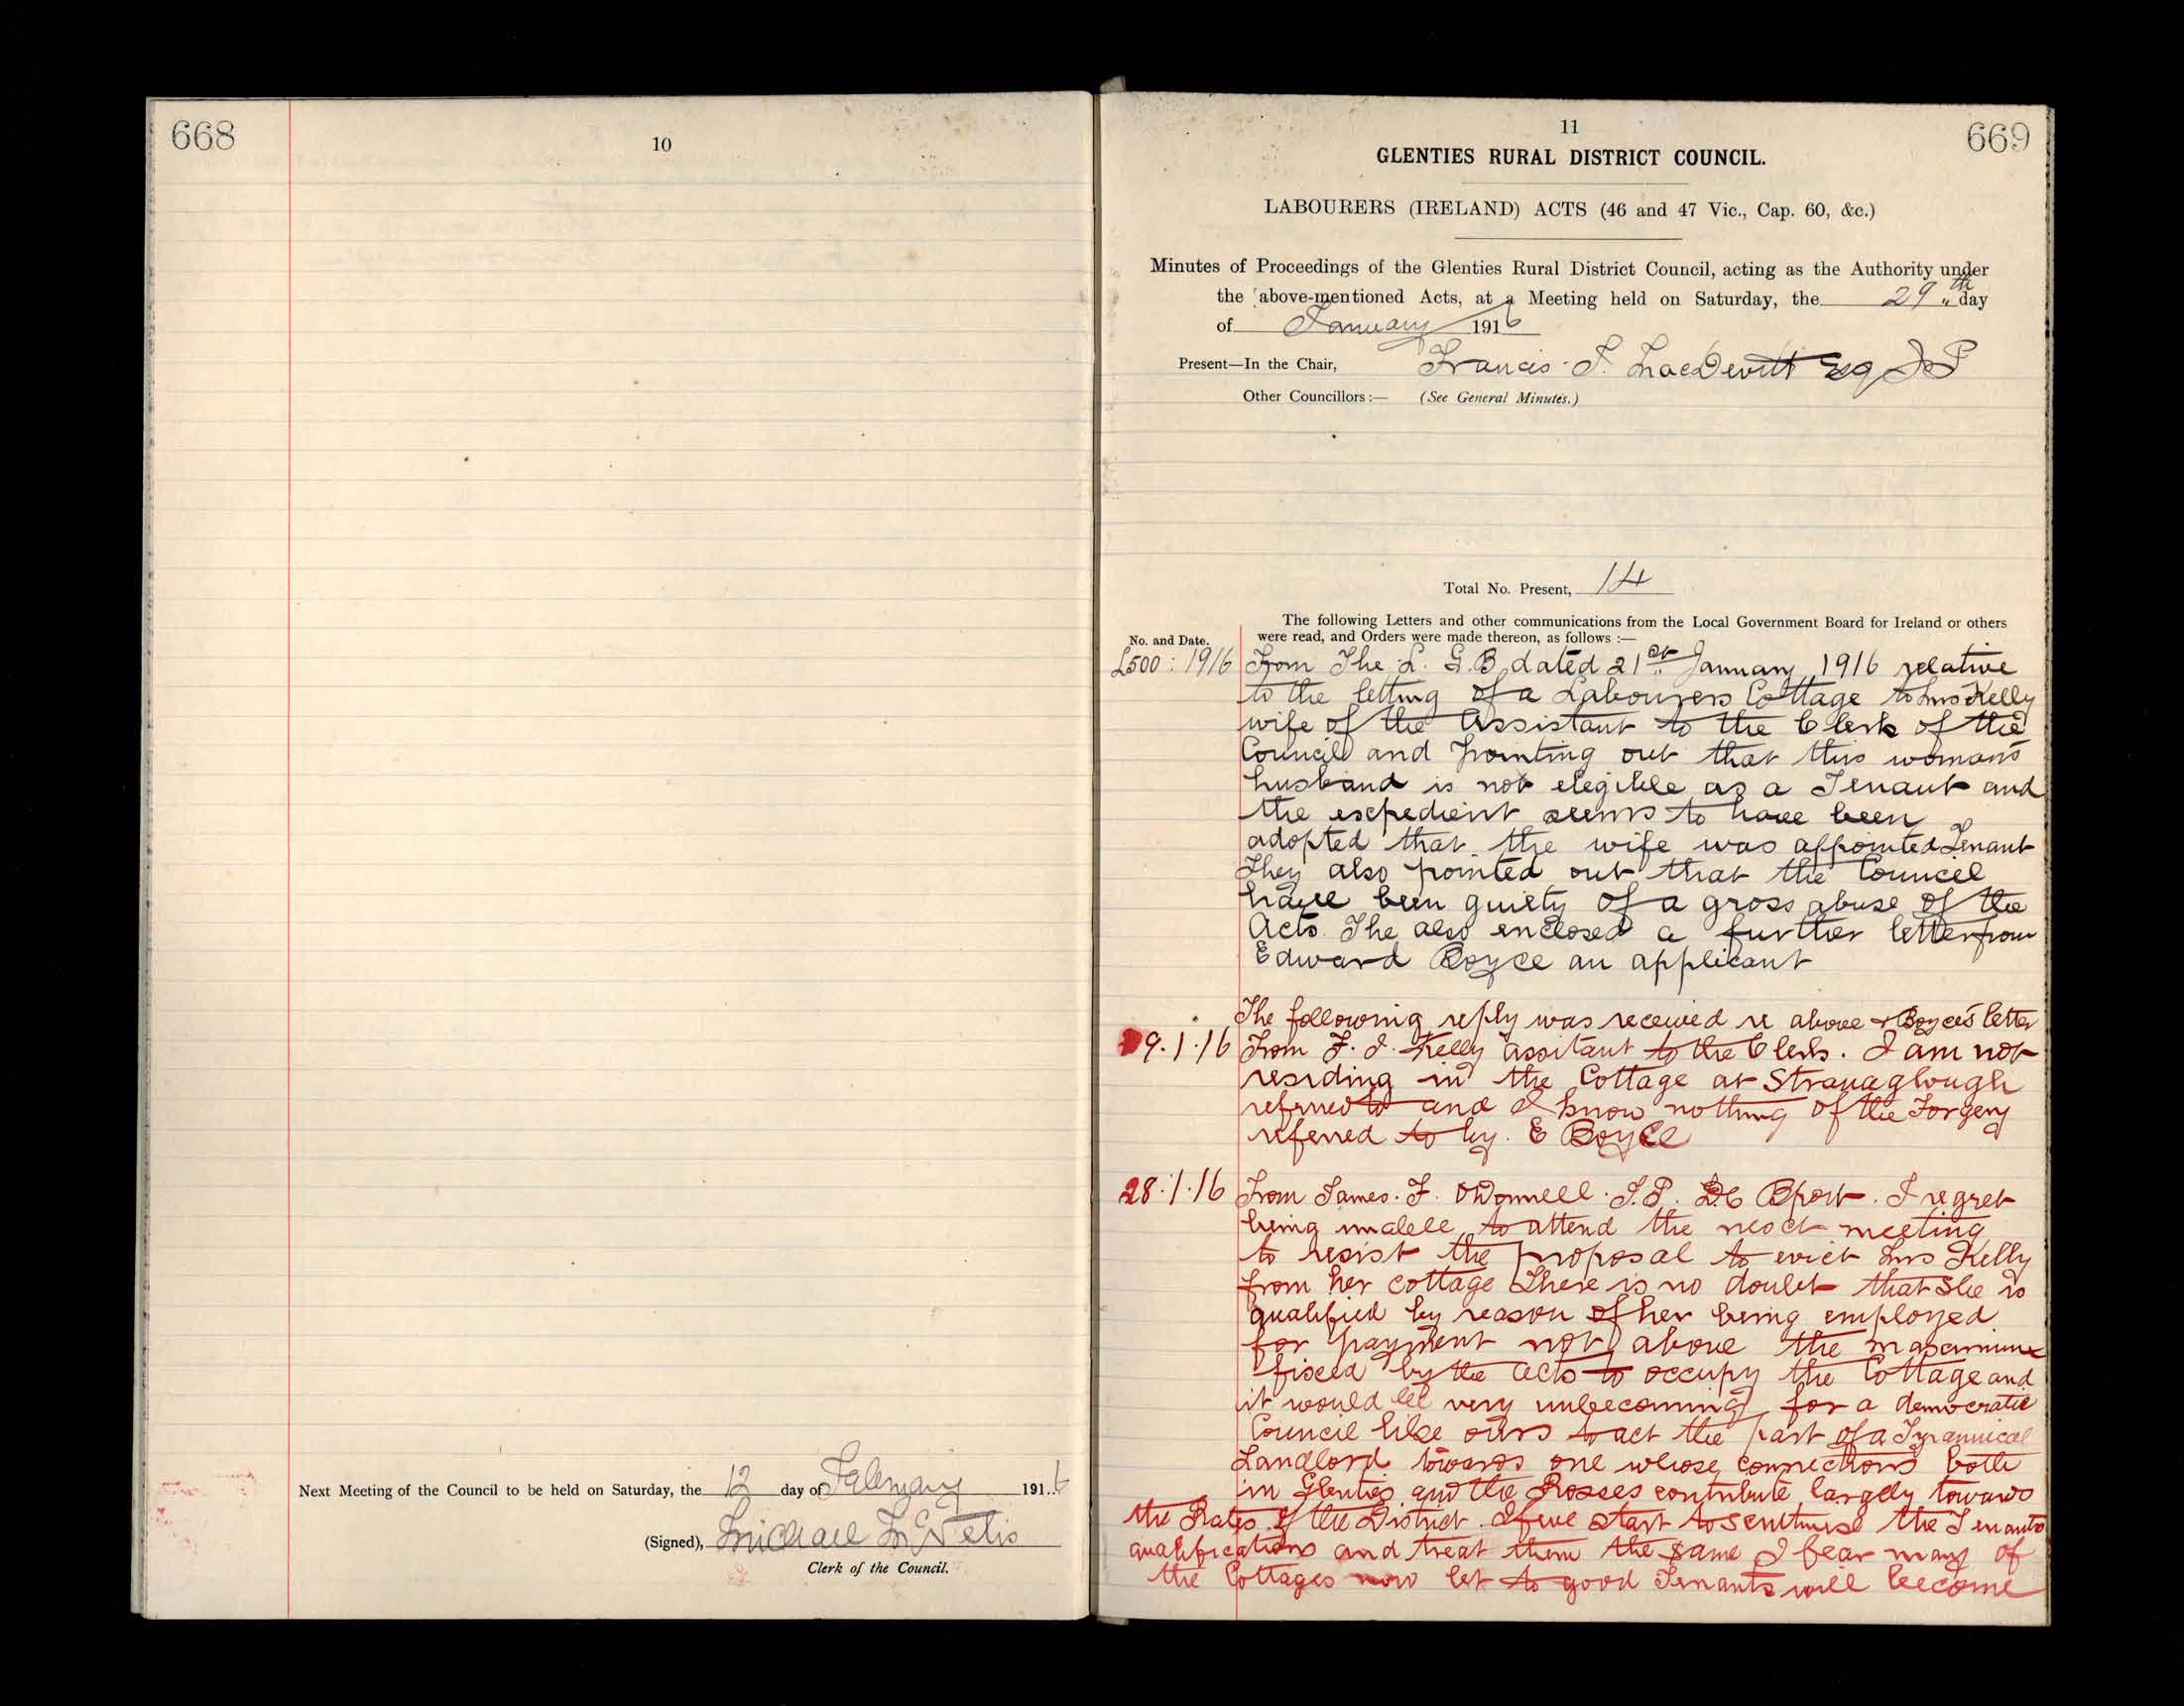 668
10
Next Meeting of the Council to be held on Saturday, the 12 day of February 1916
(Signed), Michael McNelis
Clerk of the Council.
11
669
GLENTIES RURAL DISTRICT COUNCIL.
LABOURERS (IRELAND) ACTS (46 and 47 Vic., Cap. 60, &c.)
Minutes of Proceedings of the Glenties Rural District Council, acting as the Authority under
the above-mentioned Acts, at a Meeting held on Saturday, the 29th day
of January 1916
Present—In the Chair, Francis T. MacDevitt Esq JP
Other Councillors:— (See General Minutes.)
Total No. Present, 14
The following Letters and other communications from the Local Government Board for Ireland or others
No. and Date. were read, and Orders were made thereon, as follows :—
L500 : 1916 From The L. G. B. dated 21st January 1916 relative
to the letting of a Labourers Cottage to Mrs Kelly
wife of the Assistant to the Clerk of the
Council and pointing out that this woman's
husband is not elegible as a Tenant and
the expedient seems to have been
adopted that the wife was appointed Tenant
They also pointed out that the Council
have been guilty of a gross abuse of the
Acts. The also enclosed a further letter from
Edward Boyce an applicant
The following reply was received re above & Boyce's letter
9.1.16 From F. J. Kelly assitant to the Clerk. I am not
residing in the Cottage at Stranaglough
referred to and I know nothing of the Forgery
referred to by E Boyce
28.1.16 From James. F. O'Donnell J.P. D.C Bport. I regret
being unable to attend the next meeting
to resist the proposal to evict Mrs Kelly
from her cottage There is no doubt that She is
qualified by reason of her being employed
for payment not above the maximum
fixed by the Acts to occupy the Cottage and
it would be very unbecoming for a democratic
Council like ours to act the part of a Tyrannical
Landlord towards one whose connections both
in Glenties and the Rosses contribute largely towards
the Rates of the District. If we start to scrutinise the Tenants
qualifications and treat them the same I fear many of
the Cottages now let to good Tenants will become